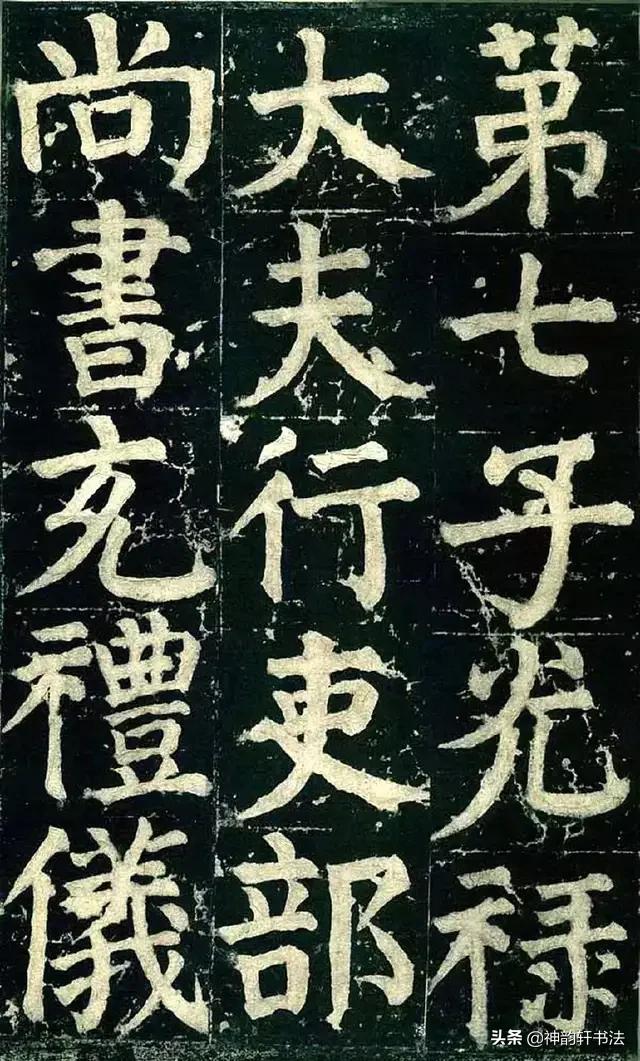 第七子光禄
大夫行吏部
尚書充禮儀
头条 @神韵轩书法